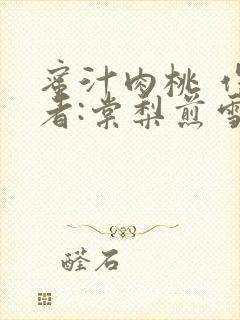 蜜汁肉桃 作
者:棠梨煎雪
醛石